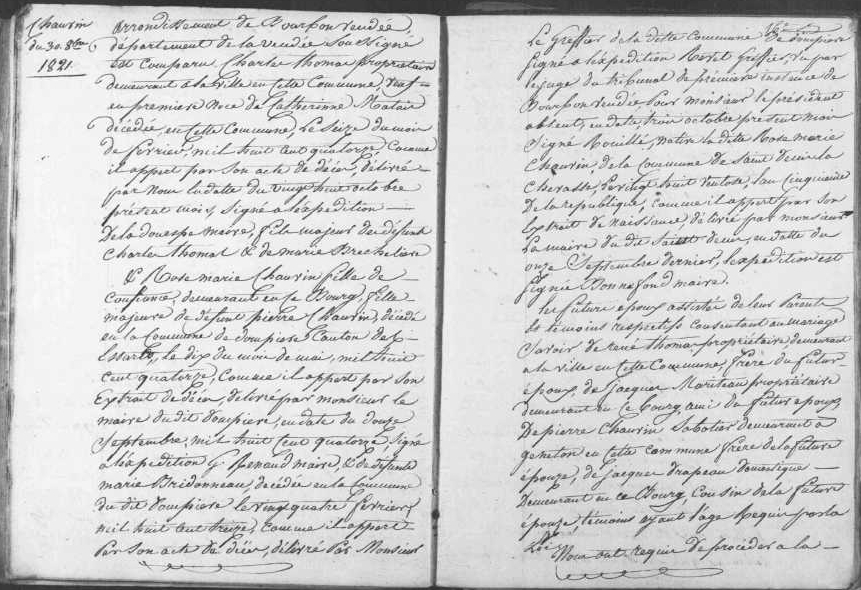 Chauvin
du 30. 8bre
1821.
arrondissement de Bourbon vendée,
département de la vendée Soussigné
Est Comparu Charles thomas propriétaire
demeurant à la ville en Cette Commune, veuf
en premiere Noce de Catherinne
décédée, en Cette Commune, Le Seize du mois
de fevrier, mil huit cent quatorze Comme
il appert par Son acte de décès, délivré
par Nous en datte du vingt huit octobre
présent mois, Signé a léxpédition
De la douespe maire, fils majeur des défunt
Charles thomas & de marie
& Rose marie Chauvin fille de
Confiance, demeurant en ce Bourg, fille
majeure de défunt pierre Chauvin, décédé
en la Commune de dompierre Canton des
Essarts, le dix du mois de mai, mil huit
Cent quatorze, Comme il appert par Son
Extrait de décès, délivré par monsieur le
maire du dit dompierre, en date du douze
Septembre, mil huit Cent quatorze Signé
a léxpédition G Renaud maire, & de défunte
marie Bridonneau, décédée en la Commune
du dit dompierre le vingt quatre fevrier
mil huit Cent treize, Comme il appert
Par Son acte de décès, délivré Par Monsieur
Le Greffier de la dite Commune de dompierre
Signé a léxpédition Greffier, vu par
le juge du tribunal de première instance de
Bourbon vendée pour monsieur le président
absent, en date, trois octobre présent mois
Signé Rouillé, Native la dite Rose marie
Chauvin, de la Commune de Saint denis la
Chevasse, Le vingt huit ventose, l'an Cinquième
De la republique, comme il appert par Son
Extrait de naissance, délivré par monsieur
Le maire du dit Saint denis, en date du
onze Septembre dernier, léxpédition est
Signée Bonnefond maire.
les future époux assistée de leurs Parents
et témoins respectifs Consentant au mariage
Savoir de rené thomas propriétaire demeurant
a la ville en Cette Commune, frère du futur
époux, de Jacques propriétaire
demeurant en Ce Bourg, ami du futur époux,
De pierre Chauvin Sabotier demeurant a
en Cette Commune frère de la future
épouze, de Jacques drapeau domestique
Demeurant en ce Bourg, Cousin de la future
épouze, témoins ayant l'age Requis par la
Loi
Nous ont requis de procéder a la